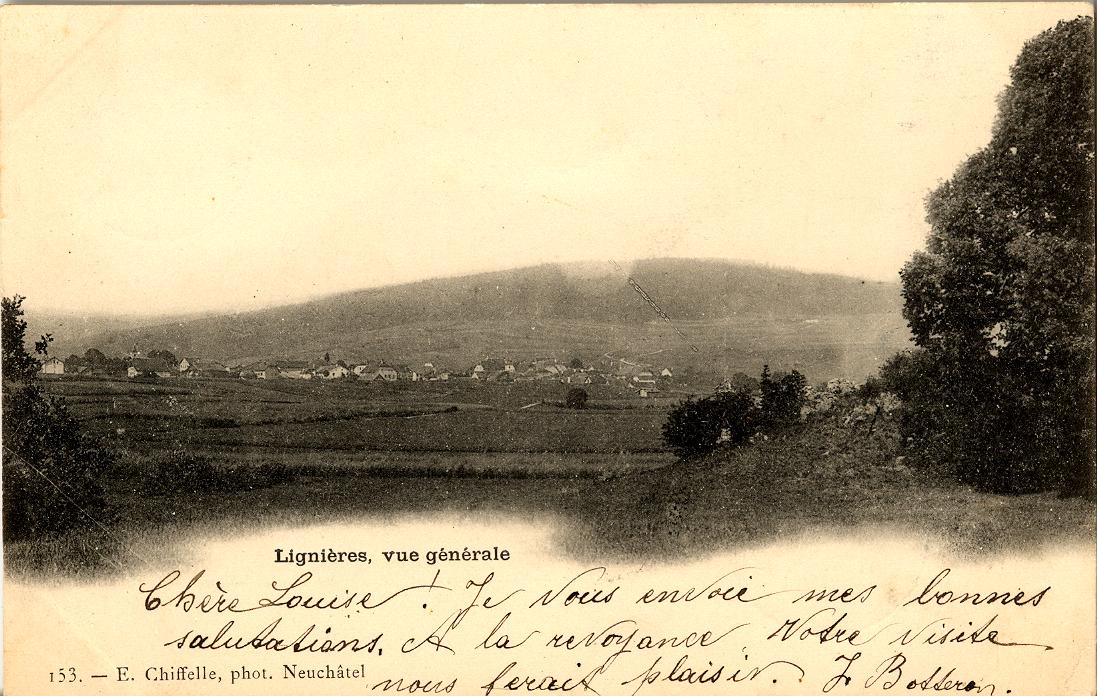 Lignières, vue générale
Chère Louise ! Je vous envoie mes bonnes
salutations. A la revoyance. Votre visite
nous ferait plaisir. J. Botteron.
153. — E. Chiffelle, phot. Neuchâtel